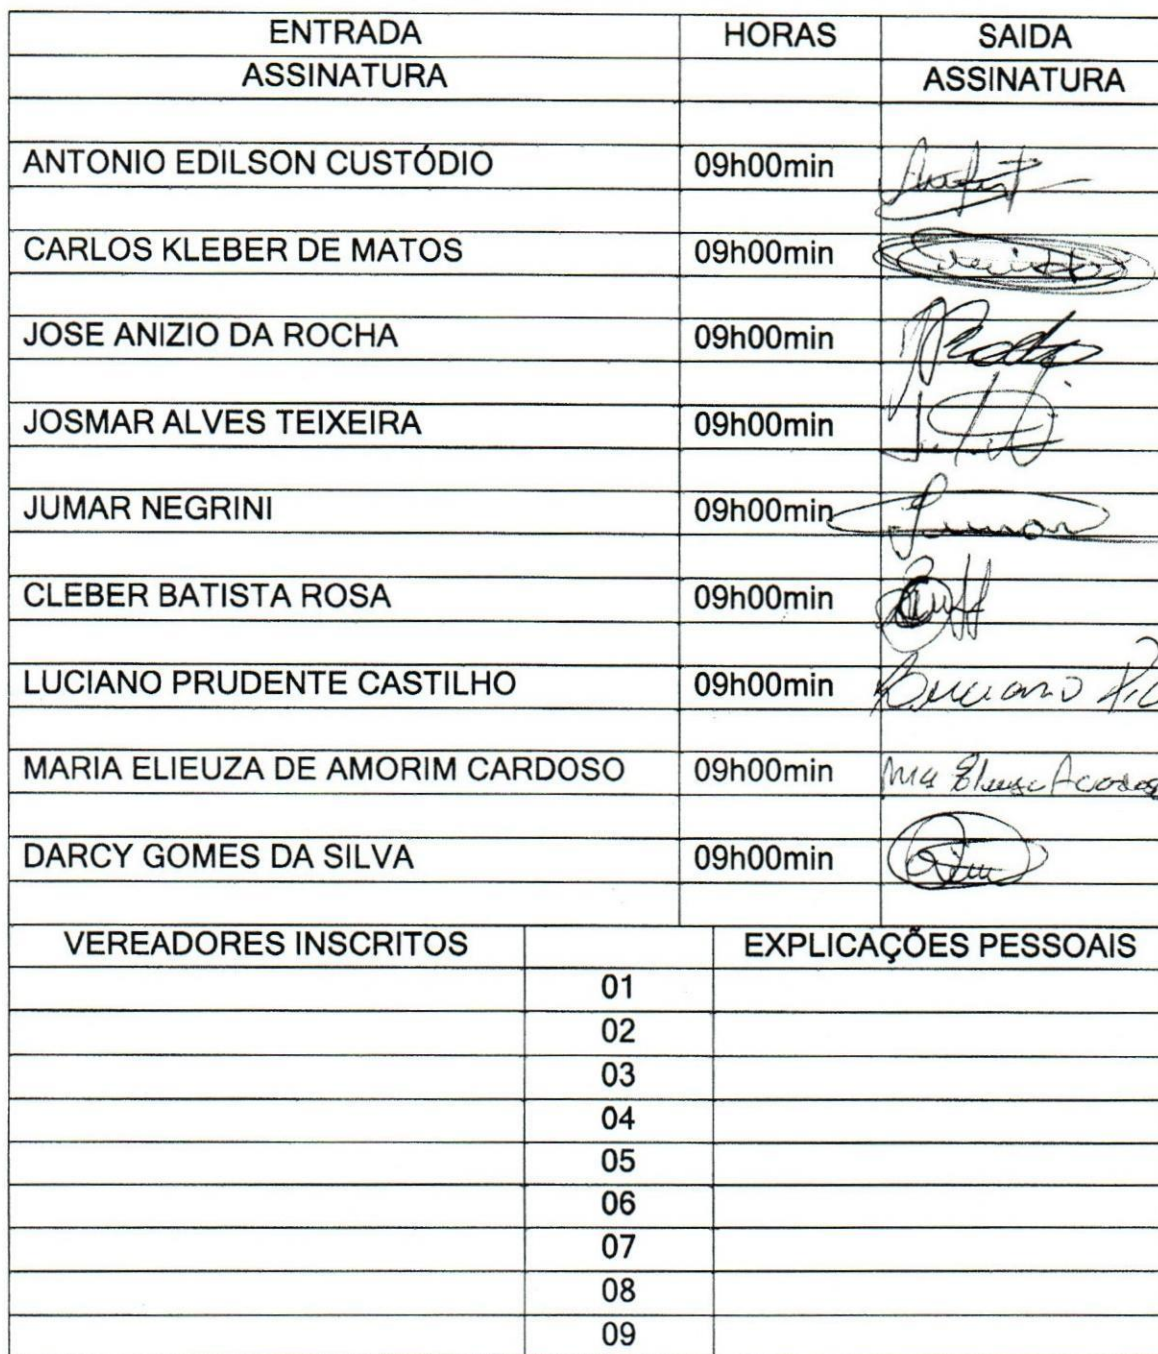 ENTRADA HORAS SAIDA
ASSINATURA ASSINATURA
ANTONIO EDILSON CUSTÓDIO 09h00min
CARLOS KLEBER DE MATOS 09h00min
JOSE ANIZIO DA ROCHA 09h00min
JOSMAR ALVES TEIXEIRA 09h00min
JUMAR NEGRINI 09h00min
CLEBER BATISTA ROSA 09h00min
LUCIANO PRUDENTE CASTILHO 09h00min
MARIA ELIEUZA DE AMORIM CARDOSO 09h00min
DARCY GOMES DA SILVA 09h00min
VEREADORES INSCRITOS EXPLICAÇÕES PESSOAIS
01
02
03
04
05
06
07
08
09